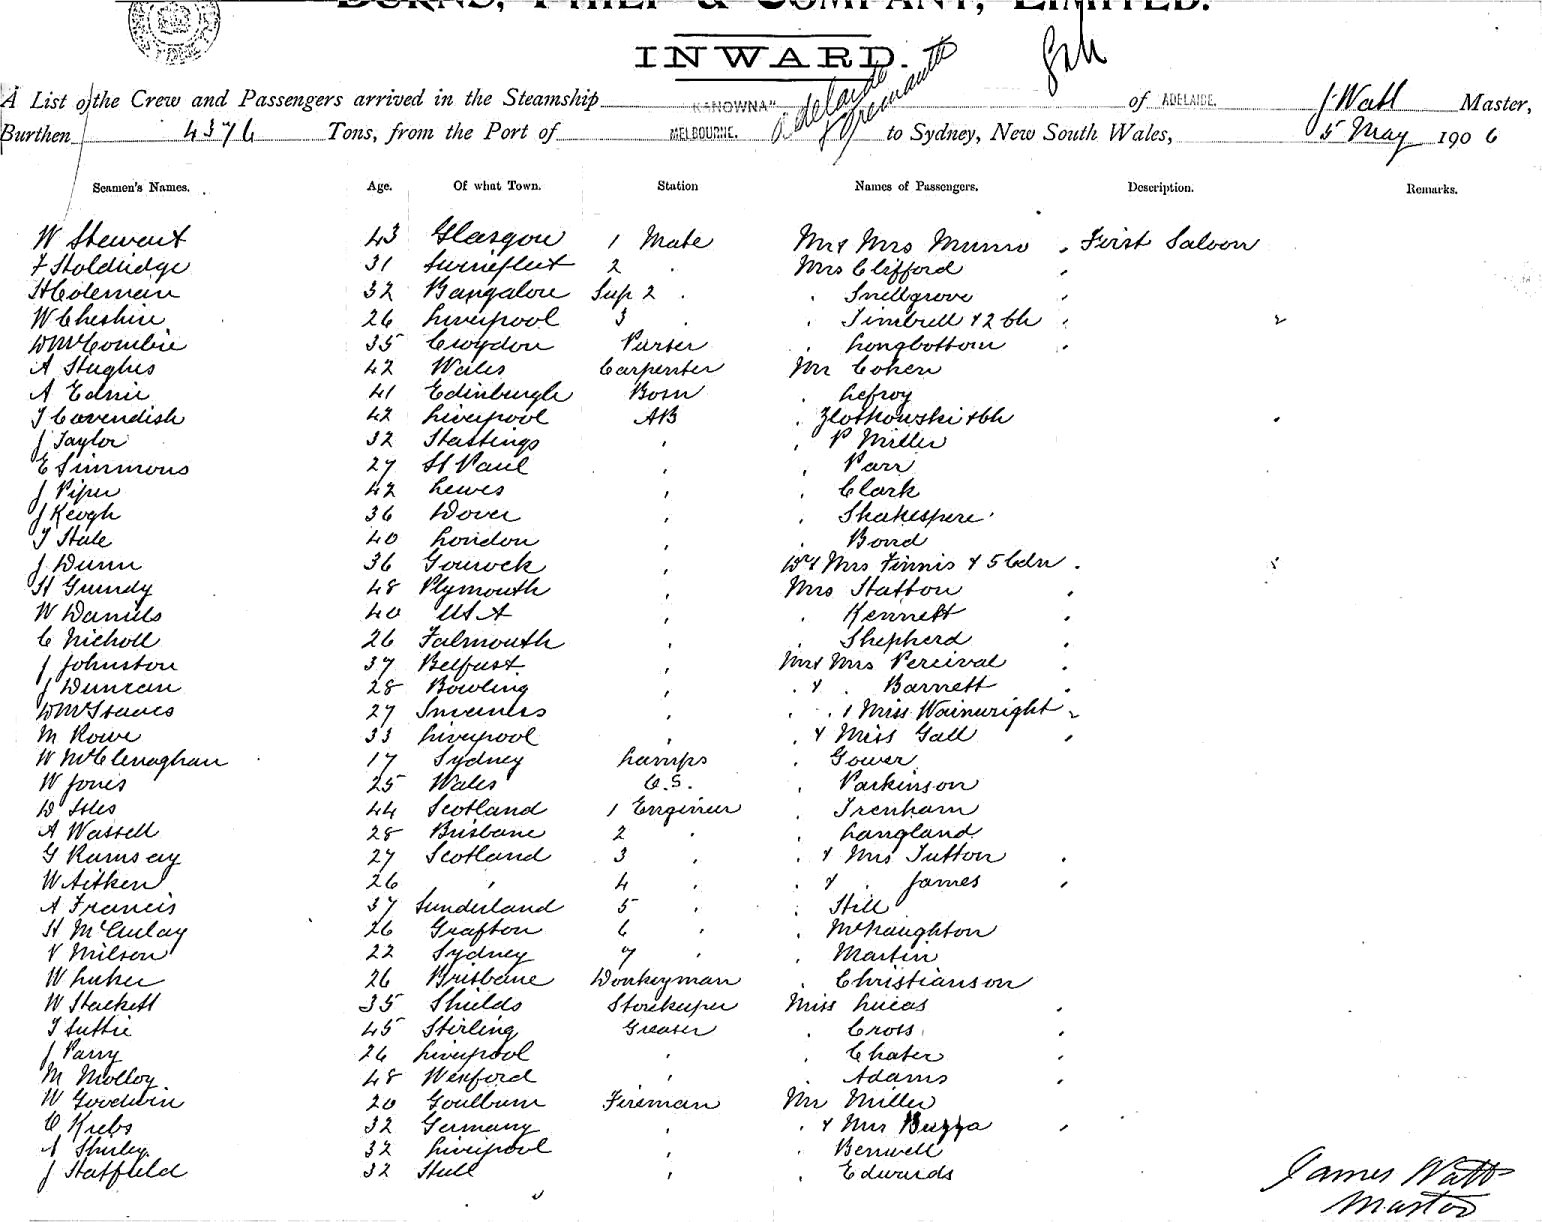 BURNS, PHILP & COMPANY, LIMITED.
INWARD.
A List of the Crew and Passengers arrived in the Steamship "KANOWNA" of ADELAIDE. J Watt Master,
Burthen 4376 Tons, from the Port of MELBOURNE. Adelaide & Fremantle to Sydney, New South Wales, 5 May 1906
Seamen's Names. Age. Of what Town. Station Names of Passengers. Description. Remarks.
W Stewart 43 Glasgow 1 Mate Mr & Mrs Munro First Saloon
F Holdridge 31 Surfleet 2 Mrs Clifford
H Coleman 32 Bangalore Sup 2 Snellgrove
W Cheshire 26 Liverpool 3 Timbrell & 2 Ch
W McCombie 35 Croydon Purser Longbottom
A Hughes 42 Wales Carpenter Mr Cohen
A Ednie 41 Edinburgh Bosn Lefroy
T Cavendish 42 Liverpool AB Zlotkowski & Ch
J Taylor 32 Hastings P Miller
E Simmons 27 St Paul Parr
J Piper 42 Lewes Clark
J Keogh 36 Dover Shakespere
T Hale 40 London Bond
J Dunn 36 Gourock Dr & Mrs Finnis & 5 Cdn
H Grundy 48 Plymouth Mrs Hatton
W Daniels 40 USA Kennett
C Nicholl 26 Falmouth Shepherd
J Johnston 37 Belfast Mr & Mrs Percival
J Duncan 28 Bowling & Barnett
27 Inverness 1 Miss Wainwright
M Rowe 33 Liverpool & Miss Gall
W McClenaghan 17 Sydney Lamps Gower
W Jones 25 Wales O.S. Parkinson
D Isles 44 Scotland 1 Engineer Trenham
A Wassell 28 Brisbane 2 Langland
G Ramsay 27 Scotland 3 & Mrs Tutton
W Aitken 26 4 & James
A Francis 37 Sunderland 5 Hill
H McAulay 26 Grafton 6 McNaughton
V Milson 22 Sydney 7 Martin
W Luker 26 Brisbane Donkeyman Christianson
W Hackett 35 Shields Storekeeper Miss Lucas
T Suttie 45 Stirling Greaser Cross
J Parry 26 Liverpool Chater
M Molloy 48 Wexford Adams
W Goodwin 20 Goulburn Fireman Mr Miller
C Krebs 32 Germany & Mrs Buzza
A Shirley 32 Liverpool Benwell
J Hatfield 32 Hull Edwards
James Watt
Master